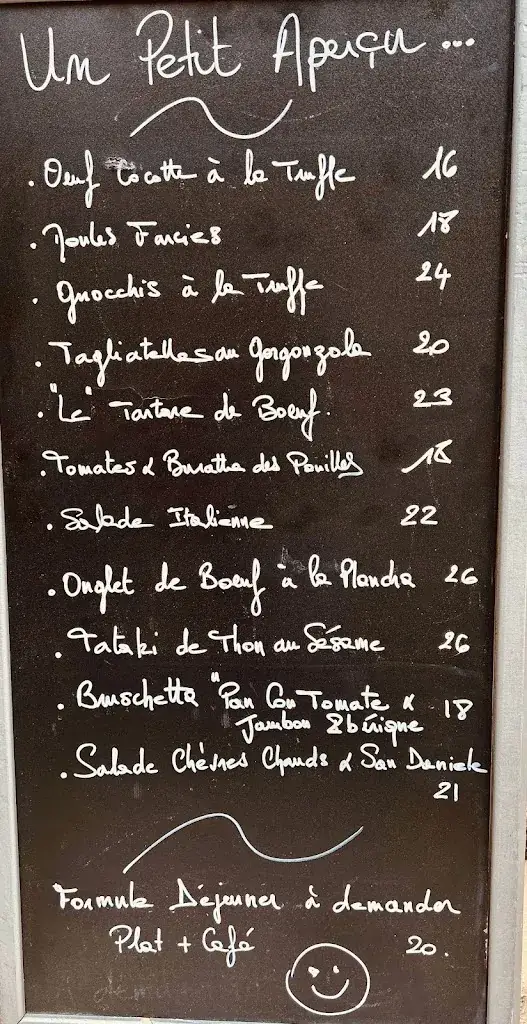 Un Petit Aperçu ...
. Oeuf Cocotte à la Truffe 16
. Moules Farcies 18
. Gnocchis à la Truffe 24
. Tagliatelles au Gorgonzola 20
. "Le" Tartare de Boeuf. 23
. Tomates & Buratta des Pouilles 18
. Salade Italienne 22
. Onglet de Boeuf à la Plancha 26
. Tataki de Thon au Sésame 26
. Bruschetta "Pan Con Tomate & 18
Jambon Ibérique
. Salade Chèvres Chauds & San Daniele
21
Formule Déjeuner à demander
Plat + Café 20.